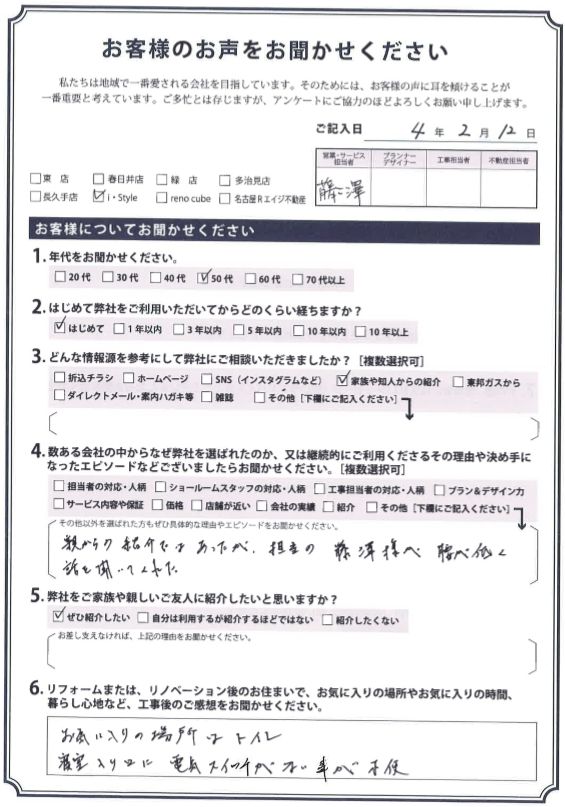 お客様のお声をお聞かせください
私たちは地域で一番愛される会社を目指しています。そのためには、お客様の声に耳を傾けることが
一番重要と考えています。ご多忙とは存じますが、アンケートにご協力のほどよろしくお願い申し上げます。
ご記入日 4 年 2 月 12 日
営業・サービス担当者 プランナーデザイナー 工事担当者 不動産担当者
藤澤
□東 店 □春日井店 □緑 店 □多治見店
□長久手店 ☑i・Style □reno cube □名古屋Rエイジ不動産
お客様についてお聞かせください
1. 年代をお聞かせください。
□20代 □30代 □40代 ☑50代 □60代 □70代以上
2. はじめて弊社をご利用いただいてからどのくらい経ちますか？
☑はじめて □1年以内 □3年以内 □5年以内 □10年以内 □10年以上
3. どんな情報源を参考にして弊社にご相談いただきましたか？［複数選択可］
□折込チラシ □ホームページ □SNS（インスタグラムなど） ☑家族や知人からの紹介 □東邦ガスから
□ダイレクトメール・案内ハガキ等 □雑誌 □その他［下欄にご記入ください］
4. 数ある会社の中からなぜ弊社を選ばれたのか、又は継続的にご利用くださるその理由や決め手に
なったエピソードなどございましたらお聞かせください。［複数選択可］
□担当者の対応・人柄 □ショールームスタッフの対応・人柄 □工事担当者の対応・人柄 □プラン&デザイン力
□サービス内容や保証 □価格 □店舗が近い □会社の実績 □紹介 □その他［下欄にご記入ください］
その他以外を選ばれた方もぜひ具体的な理由やエピソードをお聞かせください。
親からの紹介ではあったが、担当の 藤澤様が 腰が低く
話を聞いてくれた
5. 弊社をご家族や親しいご友人に紹介したいと思いますか？
☑ぜひ紹介したい □自分は利用するが紹介するほどではない □紹介したくない
お差し支えなければ、上記の理由をお聞かせください。
6. リフォームまたは、リノベーション後のお住まいで、お気に入りの場所やお気に入りの時間、
暮らし心地など、工事後のご感想をお聞かせください。
お気に入りの場所はトイレ
寝室入り口に 電気スイッチがない事が不便